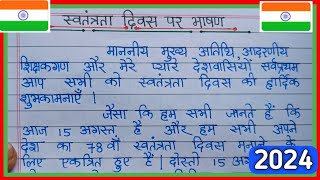 स्वतंत्रता दिवस पर भाषण
माननीय मुख्य अतिथि, आदरणीय
शिक्षकगण और मेरे प्यारे देशवासियों सर्वप्रथम
आप सभी को स्वतंत्रता दिवस की हार्दिक
शुभकामनाएँ।
जैसा कि हम सभी जानते हैं कि
आज 15 अगस्त है और हम सभी अपने
देश का 78 वाँ स्वतंत्रता दिवस मनाने के
लिए एकत्रित हुए हैं। दोस्तो 15 अग
2024